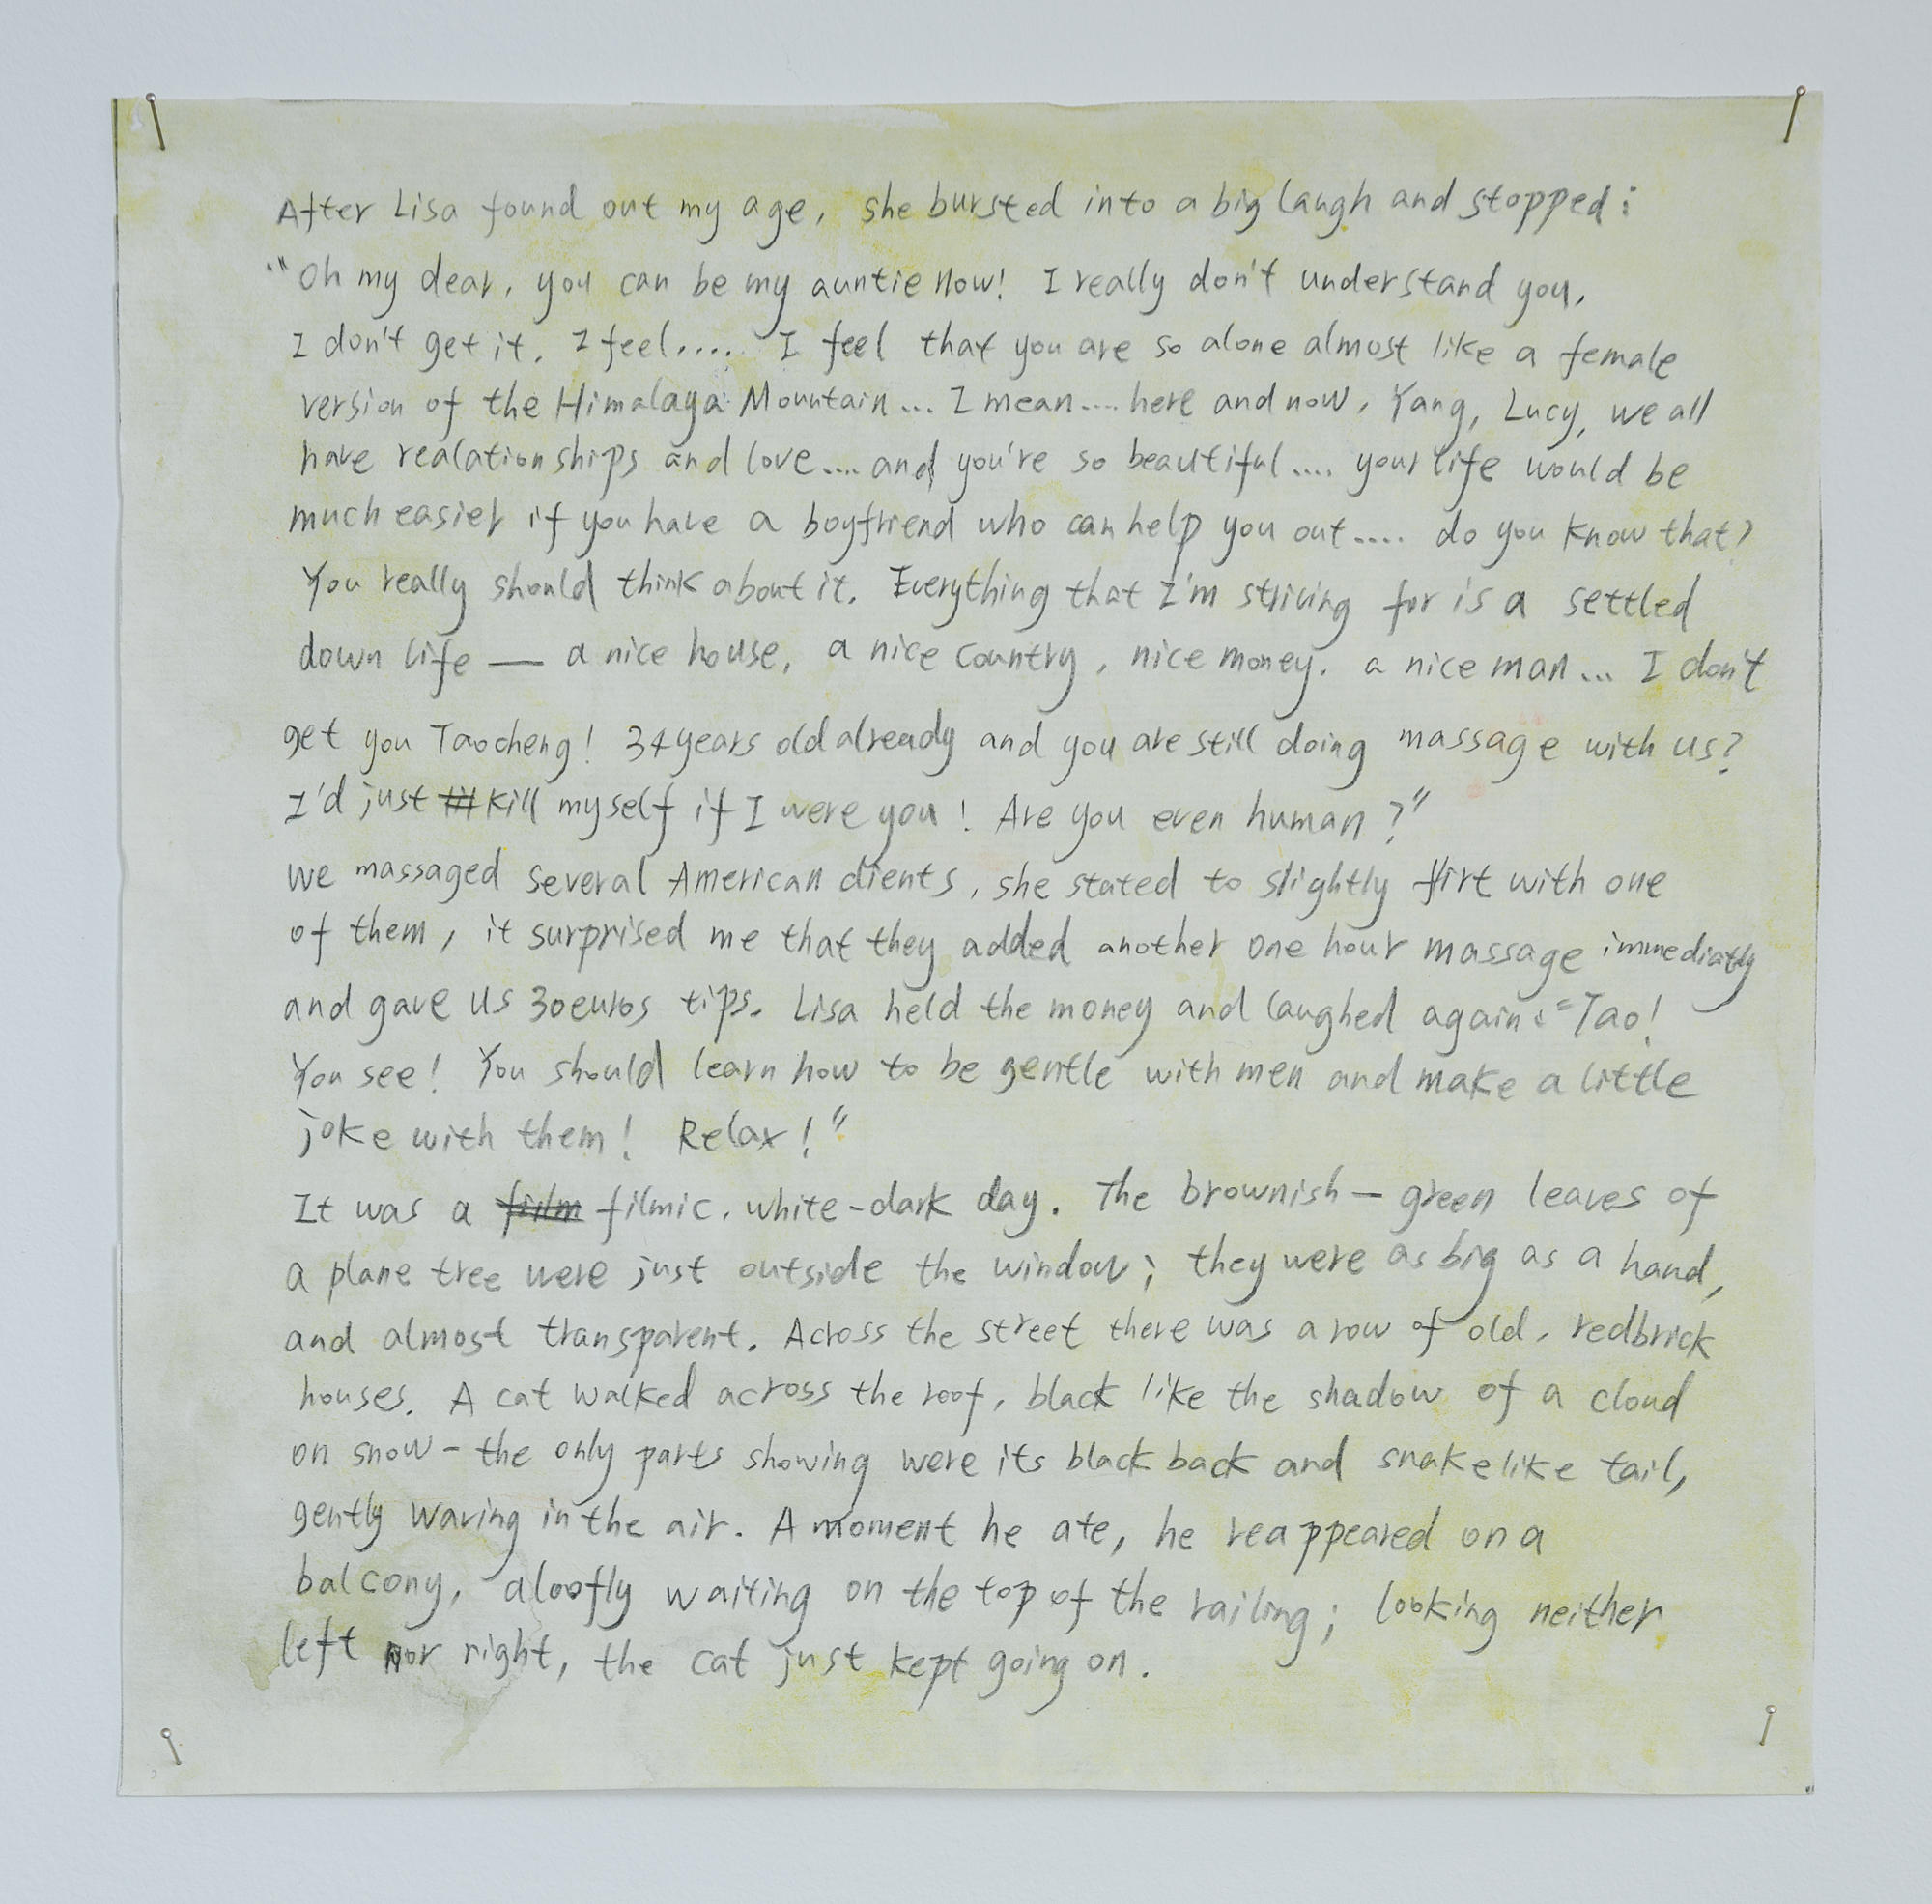 After Lisa found out my age, she bursted into a big laugh and stopped:
"Oh my dear, you can be my auntie now! I really don't understand you,
I don't get it. I feel.... I feel that you are so alone almost like a female
version of the Himalaya Mountain... I mean.... here and now, Yang, Lucy, we all
have realationships and love.... and you're so beautiful.... your life would be
much easier if you have a boyfriend who can help you out.... do you know that?
You really should think about it. Everything that I'm striving for is a settled
down life — a nice house, a nice country, nice money. a nice man... I don't
get you Taocheng! 34 years old already and you are still doing massage with us?
I'd just kill myself if I were you! Are you even human?"
We massaged several American clients, she stated to slightly flirt with one
of them, it surprised me that they added another one hour massage immediatly
and gave us 30euros tips. Lisa held the money and laughed again: "Tao!
You see! You should learn how to be gentle with men and make a little
joke with them! Relax!"
It was a film filmic, white-dark day. The brownish — green leaves of
a plane tree were just outside the window; they were as big as a hand,
and almost transparent. Across the street there was a row of old, redbrick
houses. A cat walked across the roof, black like the shadow of a cloud
on snow - the only parts showing were its black back and snakelike tail,
gently waving in the air. A moment he ate, he reappeared on a
balcony, aloofly waiting on the top of the railing; looking neither
left nor right, the cat just kept going on.